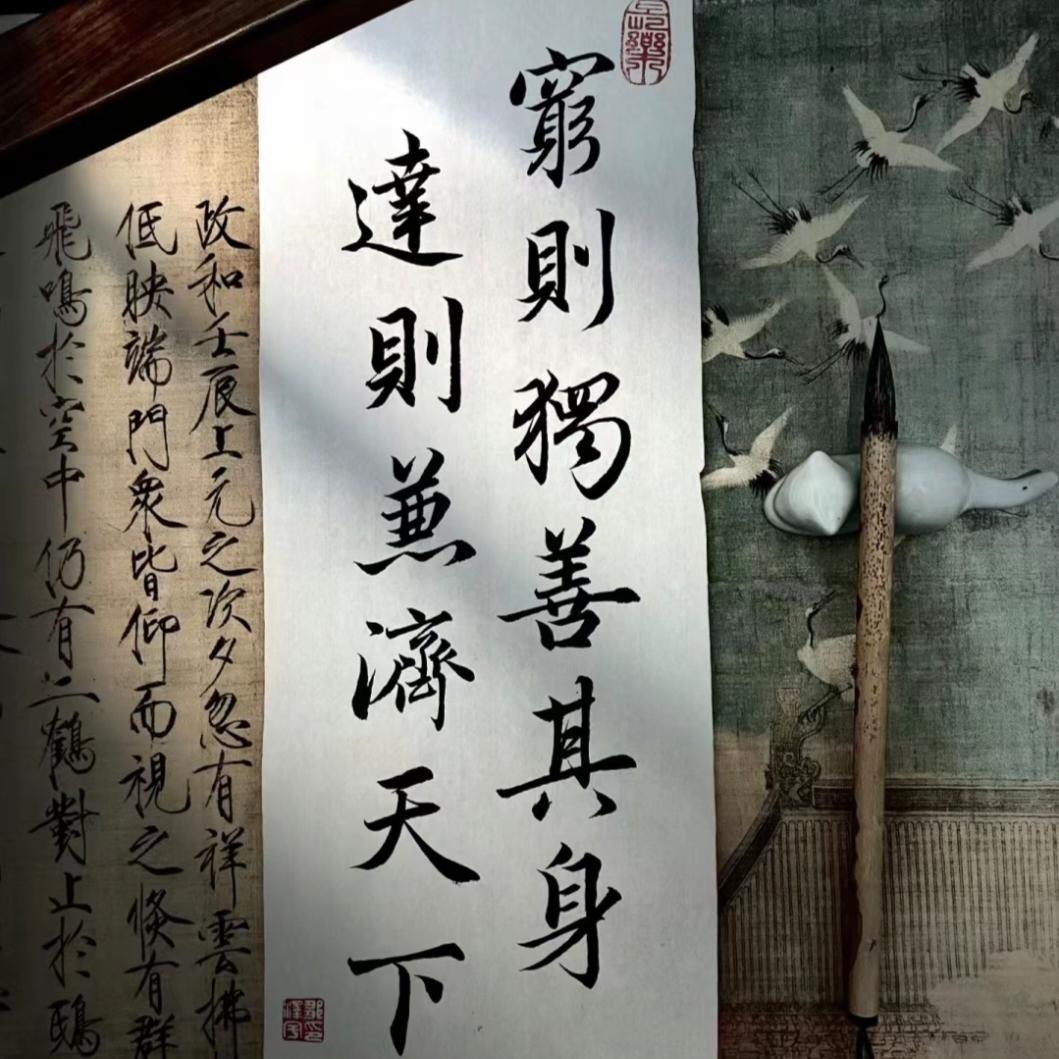 窮則獨善其身
達則兼濟天下
政和壬辰上元之次夕忽有祥雲拂
低映端門衆皆仰而視之倏有群
飛鳴於空中仍有二鶴對止於鴟